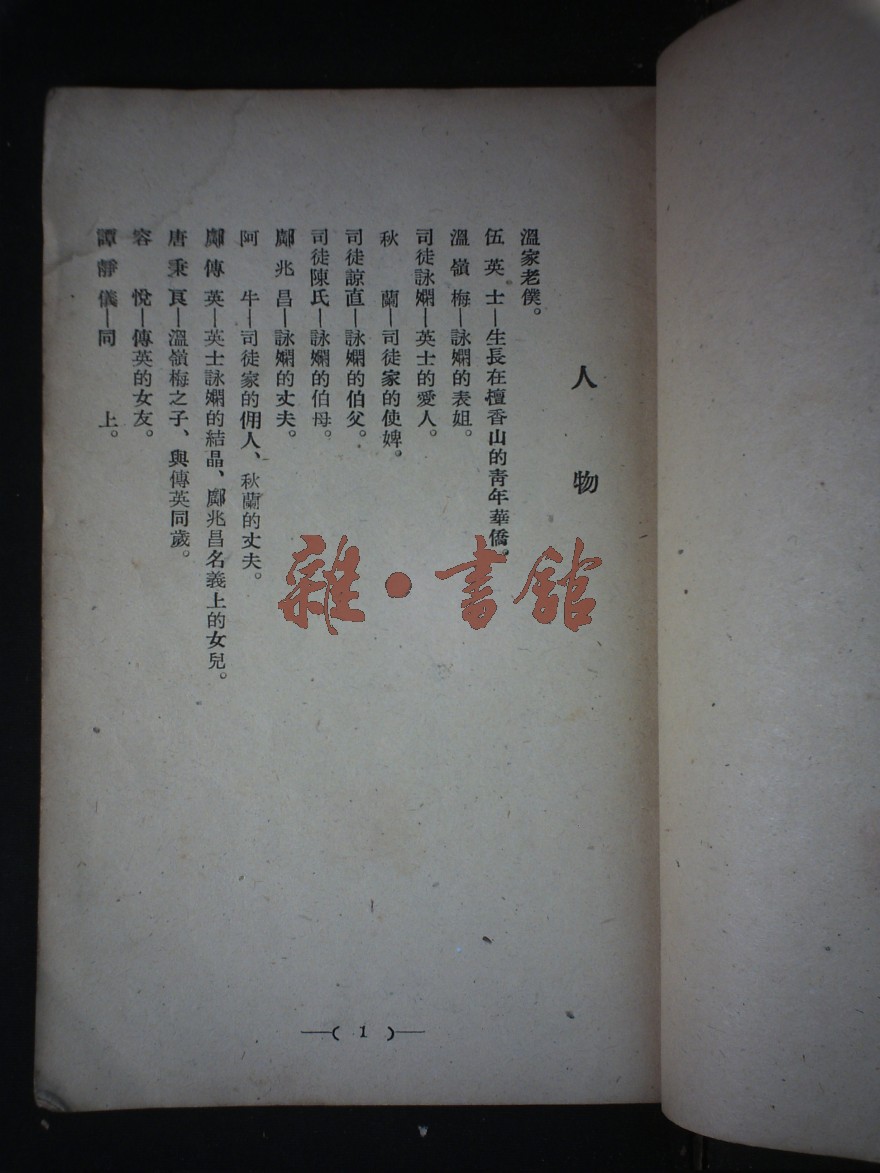 人物
溫家老僕。
伍英士—生長在檀香山的青年華僑。
溫嶺梅—詠嫻的表姐。
司徒詠嫻—英士的愛人。
秋蘭—司徒家的使婢。
司徒諒直—詠嫻的伯父。
司徒陳氏—詠嫻的伯母。
鄺兆昌—詠嫻的丈夫。
阿牛—司徒家的佣人、秋蘭的丈夫。
鄺傳英—英士詠嫻的結晶、鄺兆昌名義上的女兒。
唐秉良—溫嶺梅之子、與傳英同歲。
容悅—傳英的女友。
譚靜儀—同上。
—( 1 )—
雜·書館